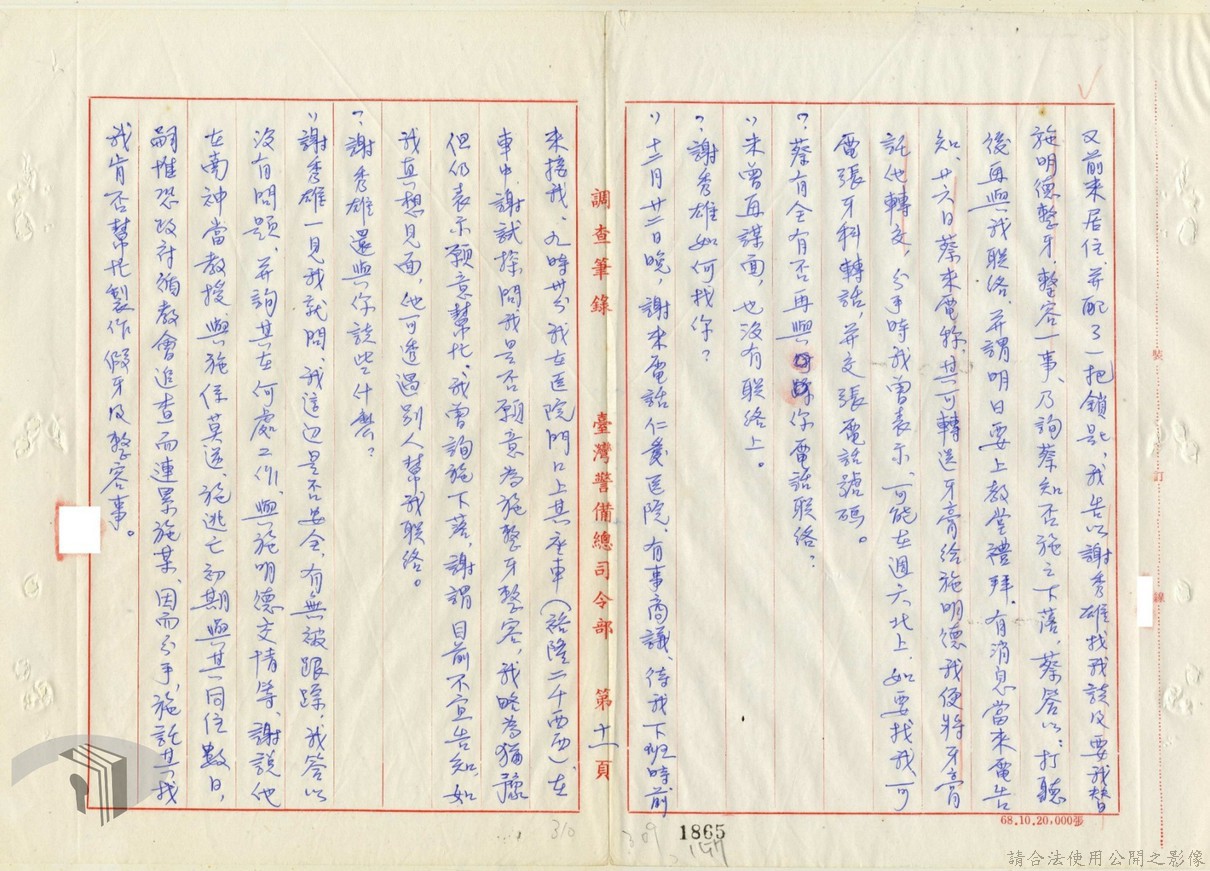 又前來居住,并配了一把鎖匙,我告以謝秀雄找我談及要我替
施明德整牙、整容一事、乃詢蔡知否施之下落,蔡答以:打聽
後再與我联络,并謂明日要上教堂禮拜,有消息當來電告
知、廿六日蔡來電称,其可轉送牙膏給施明德我便將牙膏
託他轉交,分手時我曾表示,可能在週六北上,如要找我可
電張牙科轉話,并交張電話號碼。
?蔡有全有否再與你電話联络?
:)未曾再謀面,也沒有联络上。
?謝秀雄如何找你?
:)十二月廿二日晚,謝來電話仁愛医院,有事商議,待我下班時前
調查筆錄 臺灣警備總司令部 第十一頁
來接我、九時卅分我在医院門口上其座車(裕隆二千西西)、在
車中,謝試探問我是否願意為施整牙整容,我略為猶豫
但仍表示願意幫忙、我曾詢施下落,謝謂目前不宜告知,如
我真想見面,他可透過別人幫我联络。
?謝秀雄還與你談些什麼?
:)謝秀雄一見我就問,我這边是否安全,有無被跟踪,我答以
沒有問題,并詢其在何處工作,與施明德交情等、謝說他
在南神當教授,與施係莫逆、施逃亡初期與其同住數日,
嗣惟恐政府循教會追查而連累施某、因而分手,施託其找
我肯否幫忙製作假牙及整容事。
裝
訂
線
68.10.20,000張
1865
309
310
請合法使用公開之影像